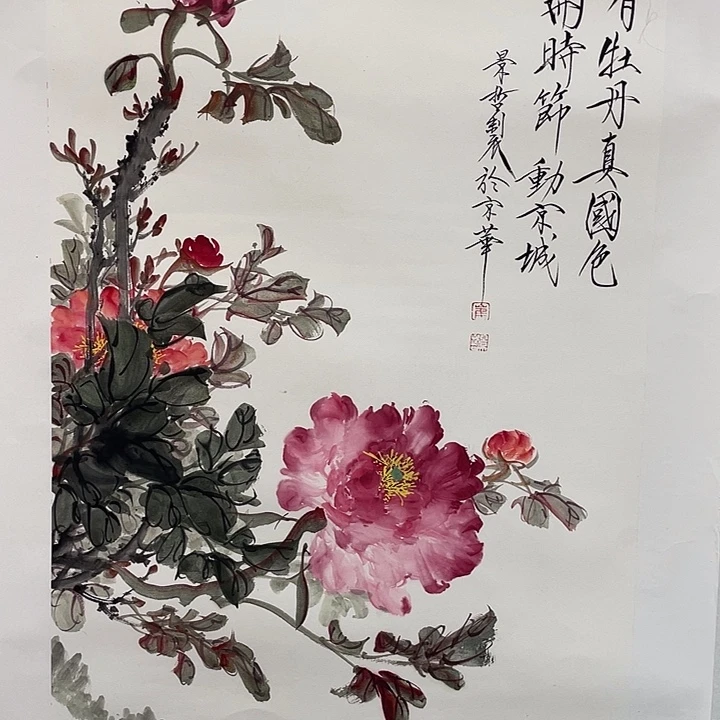 有牡丹真國色
開時節動京城
景哲制於京華